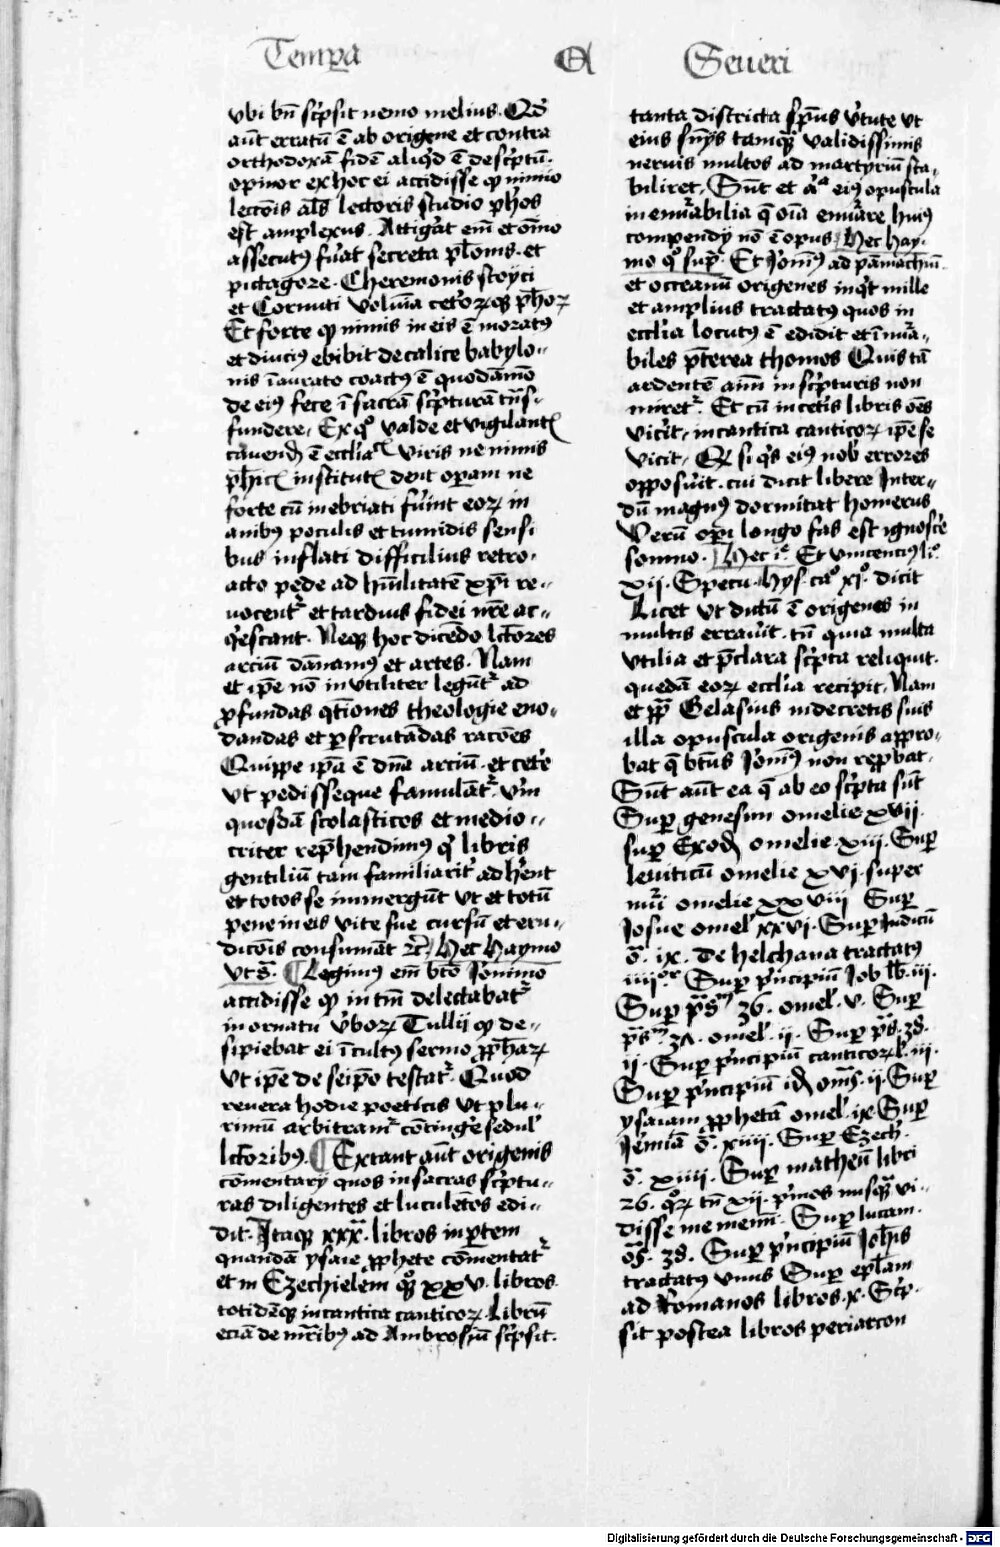 Tempora
A
Seueri
vbi bn̄ scͥpsit nemo melius. Qd̛
aūt erratū ē ab origene et contra
orthodoxā fidē aliqͥd ē descͥptū.
opinor ex hoc ei accidisse qꝫ nimio
lectōis al̄s lectoris studio ph̄os
est amplexus. Attigͣt em̄ et om̄o
assecutꝰ fuͣt secreta pl̄onis. et
pictagore. Cheremonis stoyci
et Cornuti volum̄a ceteroꝝqꝫ ph̄oꝝ
Et forte qꝫ nimis in eis ē moratꝰ
et diuciꝰ ebibit de calice babylo-
nis īaurato coactꝰ ē quodāmo
de eiꝰ fece ī sacrā scͥpturā tn̄s-
fundere. Ex qͦ valde et vigilantʳ
cauendū ē eccl̄iaͨ viris ne nimis
ph̄icͥ institutͥ dent opam ne
forte cū inebriati fuīnt eoꝝ in
anibꝰ poculis et tumidis sensi
bus inflati difficilius retro-
acto pede ad hūilitatē xp̄i re-
uocentʳ et tardius fidei nr̄e ac-
qͥescant. Neqꝫ hoc dicēdo lc̄ores
arciū dānamꝰ et artes. Nam
et ip̄e nō invtiliter legūtʳ ad
ꝓfundas qͦ̄tiones theologie eno-
dandas et ꝑscrutādas racōes
Quippe ip̄a ē dn̄a arciū. et cete
vt pedisseque famulātʳ. Vm̄
quosdā scolasticos et medio-
criter rep̄hendimꝰ qͥ libris
gentiliū tam familiaritͥ adh̄ent
et totos se immergūt vt et totū
pene in eis vite sue cursū et eru-
dicōis consumāt ⁊c̄. Hec Haymo
vt s̄. ¶ Legimꝰ em̄ btō Ieronimo
accidisse qꝫ in tm̄ delectabatʳ
in ornatu v̓boꝝ Tullij qꝫ de-
sipiebat ei īcultꝰ sermo ꝓph̄aꝝ
vt ip̄e de seip̄o testatʳ. Quod
reuera hodie poeticis vt plu-
rimū arbitramʳ cōtinge sedul̓
lc̄toribꝰ. ¶ Extant aūt origenis
cōmentarij quos in sacras scͥptu-
ras diligentes et luculētos edi-
dit. Itaqꝫ xxx. libros in ꝑtem
quandā ysaie ꝓphete cōmentatʳ
et in Ezechielem qͦꝫ xxv. libros
totidēqꝫ in cantica canticoꝝ. Librū
eciā de mr̄ibꝰ ad Ambrosiū scͥpsit.
tanta districta sp̄us v̓tute vt
eius sn̄ijs tamqͣꝫ validissimis
neruis multos ad martyriū sta-
biliret. Sūt et aͣ eiꝰ opuscula
inenūabilia q̄ oīa enūare huiꝰ
compendij nō ē opus. Hec Hay-
mo qͦ supͣ. Et Ieroīmꝰ ad pāmachiū.
et occeanū origenes inqͥt mille
et amplius tractatꝰ quos in
eccl̄ia locutꝰ ē edidit et īnūa-
biles p̄terea thomos Quis tā
ardentē aīm in scͥpturis non
miretʳ. Et cū in cetis libris oēs
vicͥit. in cantica canticoꝝ ip̄e se
vicit. Qꝫ si qͥs eiꝰ nob̓ errores
opposuͥit. cui dicit libere Inter-
dū magnꝰ dormitat homerus
Verū opi longo fas est ignosce
somno. Hec iͤ. Et Vincenciꝰ liͦ.
xij. Specu. hys. caͦ xjͦ. dicit
Licet vt dictū ē origenes in
multis erraūit. tn̄ quia multa
vtilia et p̄clara scͥpta reliquit.
quedā eoꝝ eccl̄ia recipit. Nam
et pp̄ Gelasius in decretis suis
illa opuscula origenis appro-
bat q̄ bt̄us Ieroīmꝰ non reprobat.
Sūt aūt ea q̄ ab eo scͥpta sūt
Suꝑ genesim omelie xvij.
suꝑ Exod̛ omelie. xiij. Suꝑ
leuiticū omelie xvj. super
nūi omelie xxviij Suꝑ
Iosue omel̓ xxvj. Suꝑ Iudicū
ō. ix. de helchana tractatꝰ
iiijͦʳ. Suꝑ pͥncipiū Iob lb̄. iij.
Suꝑ p̄sͫ 36. omel̓. v. Suꝑ
p̄sͫ 37. omel̓. ij. Suꝑ p̄s. 38.
ij. Suꝑ pͥncipiū canticoꝝ l̓. iij.
Suꝑ pͥncipiū id̛ om̄s. ij. Suꝑ
ysaiam ꝓphetā omel̓. ix. Suꝑ
Iēmiā ō. xiiij. Suꝑ Ezech̓.
ō. xiiij. Suꝑ matheū libri
26. qͦꝝ tn̄ xij. pͥmos nusqͣꝫ vi-
disse me memī. Suꝑ lucam.
ōs. 38. Suꝑ pͥncipiū Ioh̄is
tractatꝰ vnus Suꝑ epl̄am
ad Romanos libros. x. Scͥp-
sit postea libros periarcon
Digitalisierung gefördert durch die Deutsche Forschungsgemeinschaft - DFG